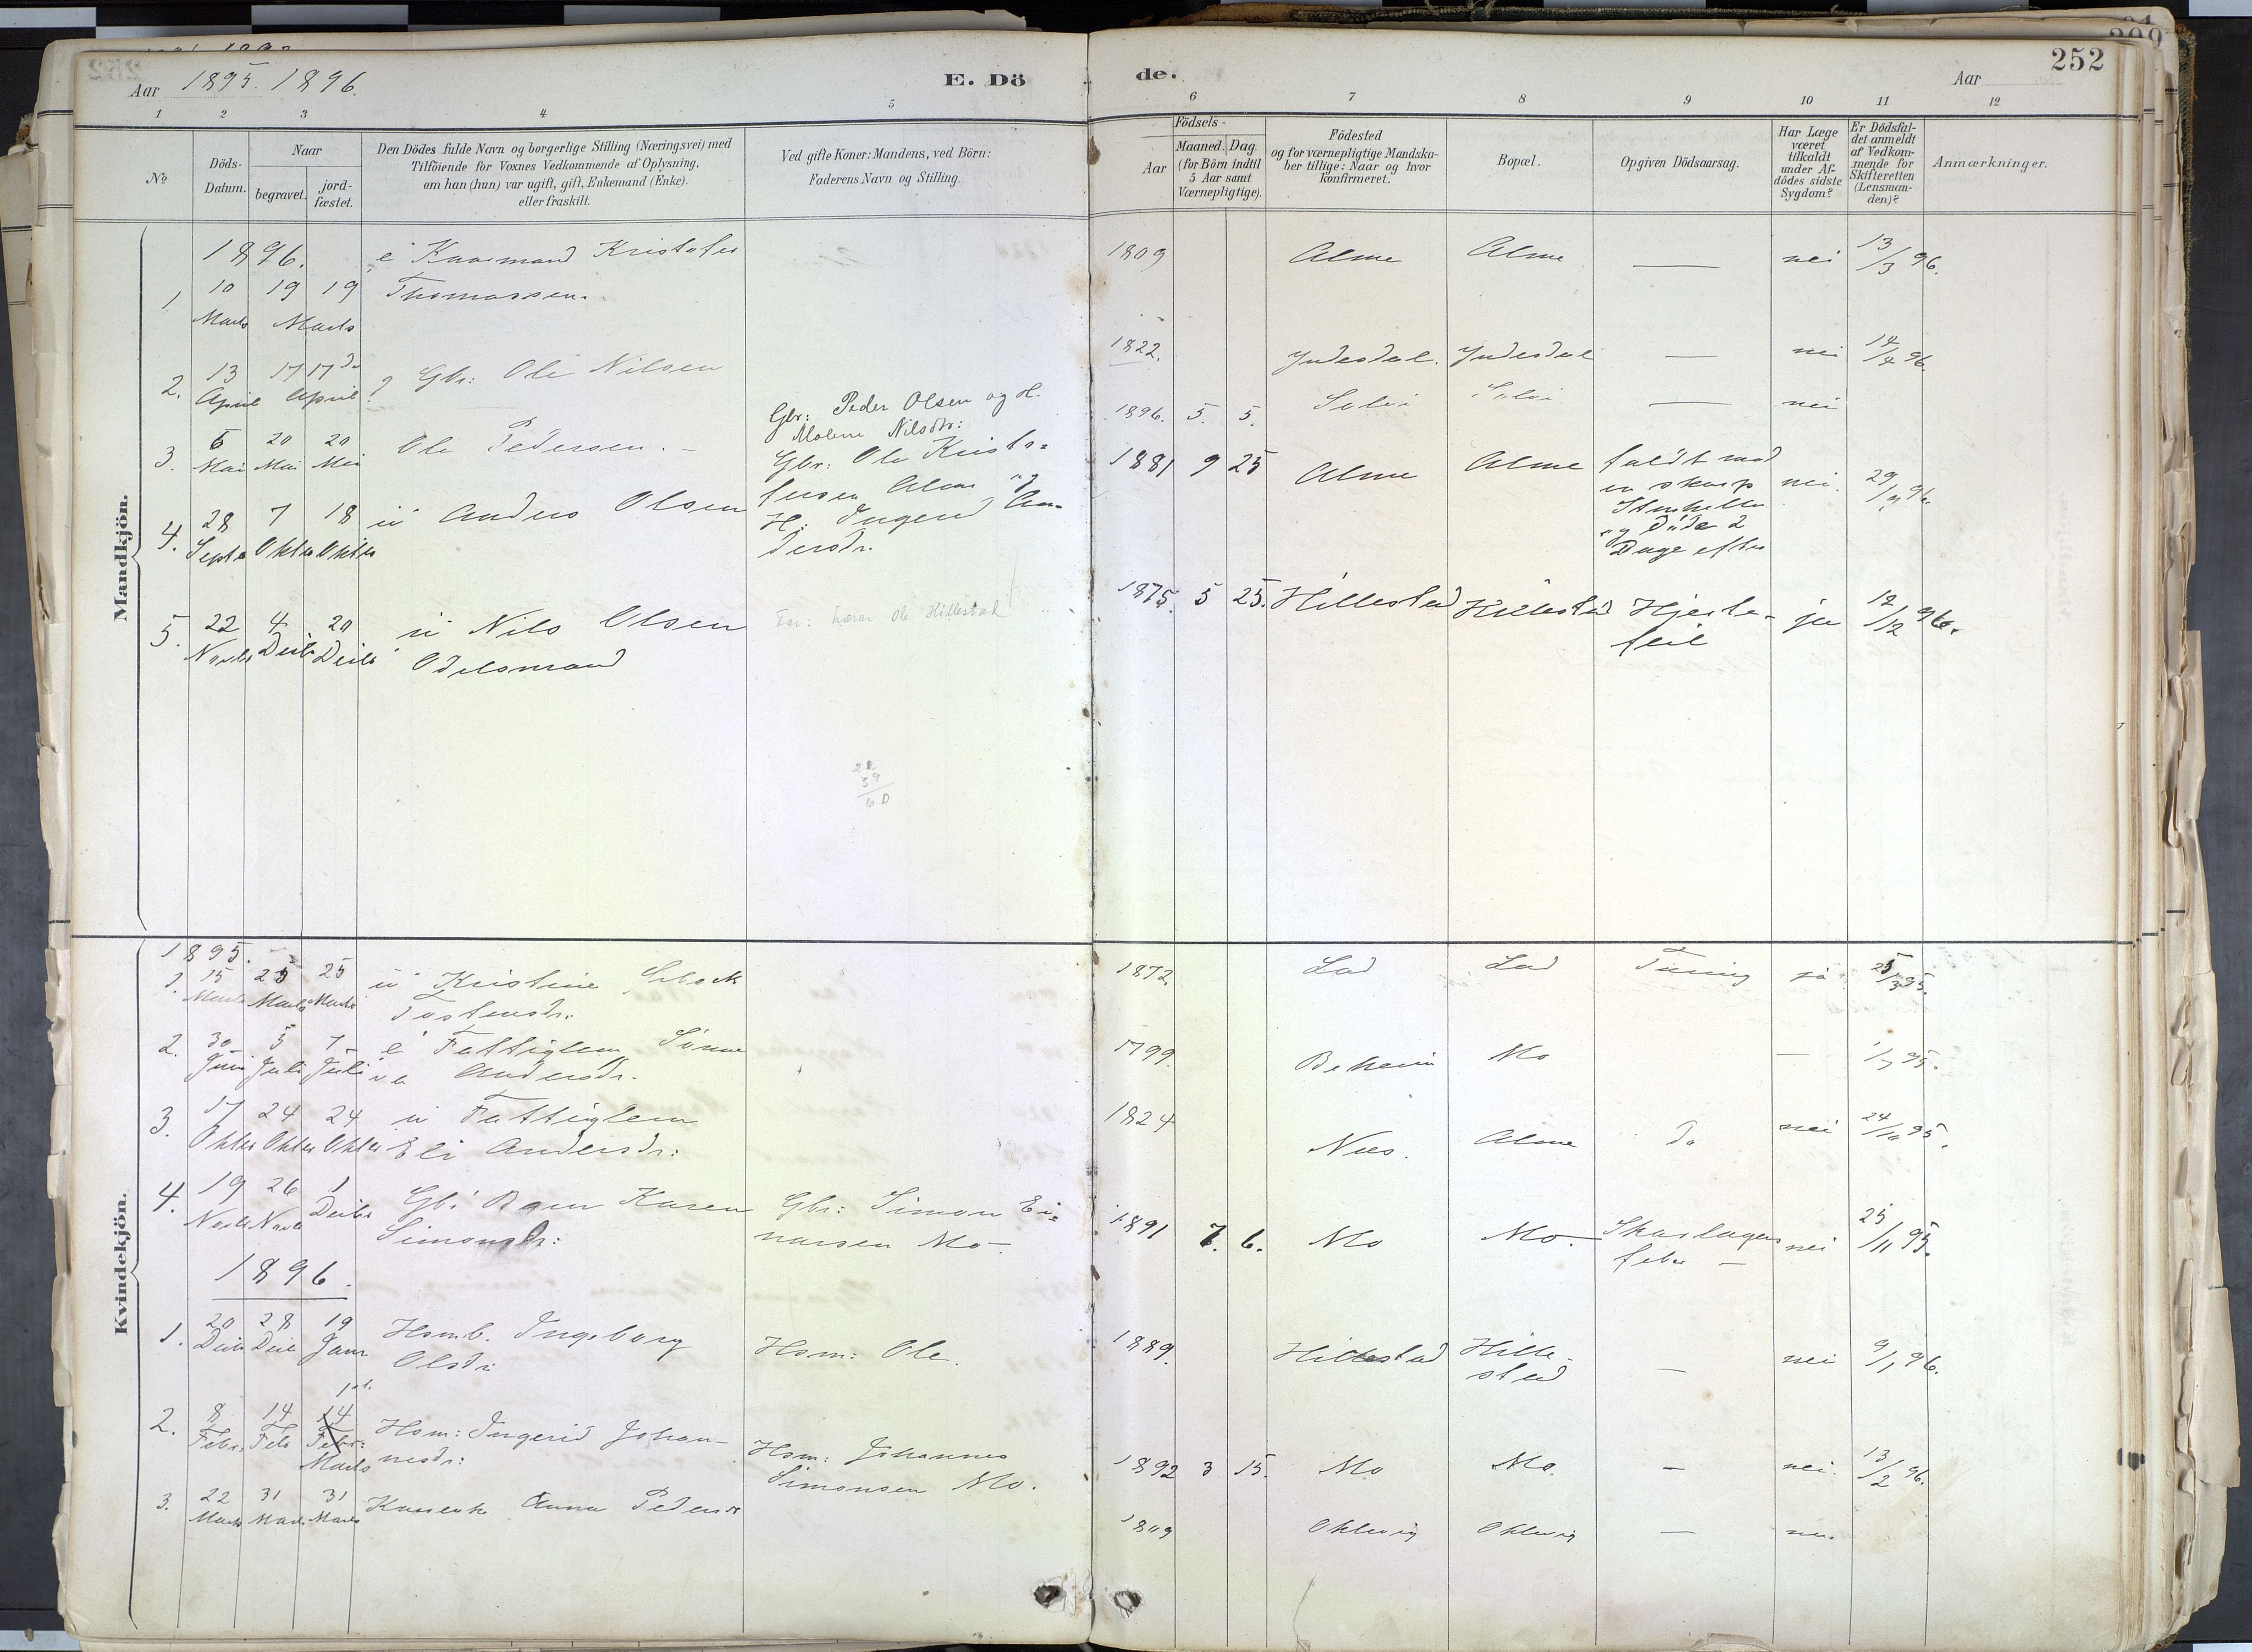 252
Aar 1895. 1896.
E. Dö
de.
Aar
1 2 3 4 5 6 7 8 9 10 11 12
No
Döds-
Datum.
Naar
begravet.
jord-
fæstet.
Den Dödes fulde Navn og borgerlige Stilling (Næringsvei) med
Tilföiende for Voxnes Vedkommende af Oplysning,
om han (hun) var ugift, gift, Enkemand (Enke).
eller fraskilt.
Ved gifte Koner: Mandens, ved Börn:
Faderens Navn og Stilling.
Födsels-
Aar
Maaned. Dag.
(for Börn indtil
5 Aar samt
Værnepligtige).
Födested
og for værnepligtige Mandska-
ber tillige: Naar og hvor
konfirmeret.
Bopæl.
Opgiven Dödsaarsag.
Har Læge
været
tilkaldt
under Af-
dödes sidste
Sygdom?
Er Dödsfal-
det anmeldt
af Vedkom-
mende for
Skifteretten
(Lensman-
den)?
Anmærkninger.
Mandkjön.
1896.
1 10 Marts 19 19 Marts
e Kaarmand Kristofer
Thomassen.
1809 Alme Alme — nei 13/3 96.
2. 13 April 17 17de April
g Gbr: Ole Nilsen
1822. Indesdal. Indesdal — nei 14/4 96.
3. 6 Mai 20 Mai 20 Mai
Ole Pedersen. —
Gbr: Peder Olsen og H.
Malene Nilsdtr:
1896. 5. 5. — nei
4. 28 Septb 7 Oktbr 18 Oktbr
ü Anders Olsen
Gbr: Ole Kristo=
fersen Alme og
H: Ingerid An-
dersdr.
1881 9 25 Alme Alme
faldt mod
en skarp
Stenhelle
og döde 2
Dage efter
nei. 29/9 96.
5. 22 Novbr 4 Decb 20 Decb
ü Nils Olsen
Odelsmand
Far: Ole Hillestad
1875. 5 25. Hillestad Hillestad Hjerte-
feil
ja 12/12 96.
Kvindekjön.
1895.
1. 15 Marts 25 Marts 25 Marts
ü Kristine
Tostensdr.
1872. Lad Lad Tæring ja 25/3 95.
2. 30 Juni 5 Juli 7 Juli
e Fattiglem Sönne
va Andersdr.
1799. Mo — 1/7 95.
3. 17 Oktbr 24 Oktbr 24 Oktbr
ü Fattiglem
Eli Andersdr:
1824 Nees. Alme do nei 24/10 95.
4. 19 Novb 26 Novb 1 Decbr
Gb: Barn Karen
Simonsdr:
Gbr: Simon Ei=
narsen Mo.
1891 7. 6. Mo Mo. Skarlagens
feber —
nei 25/11 95.
1896.
1. 20 Decb 28 Decb 19 Janr
Hsmb. Ingeborg
Olsdr:
Hsm: Ole.
1889. Hillestad Hille-
stad
— nei 9/1 96.
2. 8 Febr. 14 Feb 1st 14 Febr: Marts
Hsm: Ingerid Johan-
nesdr:
Hsm: Johannes
Simonsen Mo.
1892 3 15. Mo Mo. — nei. 13/2 96.
3. 22 Marts 31 Marts 31 Marts
Anna Pedersdr
1809 —